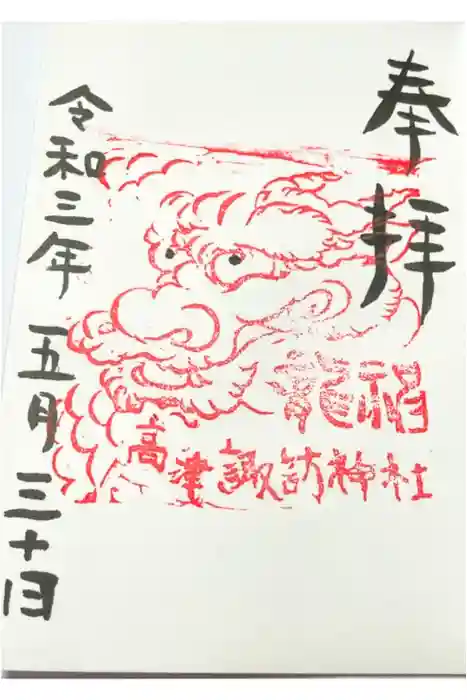 奉拝
福龍
高津諏訪神社
令和三年五月三十日